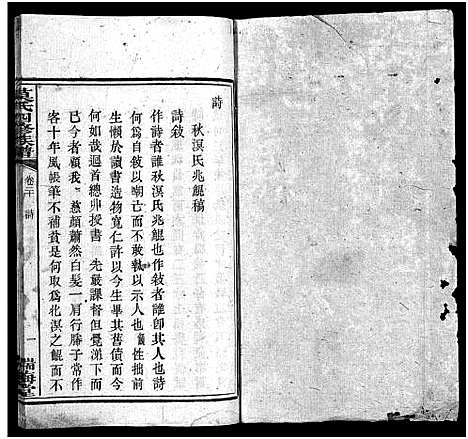 詩
秋溟氏兆鯤稿
詩敘
作詩者誰秋溟氏兆鯤也作敘者誰卽其人也詩
何爲自敘以嘲古而不敢執以示人也鯤性拙前
生懶於讀書造物寬仁許以今生畢其舊債而今
何如哉迴首總丱授書 先嚴課督但覺涕下而
已今者顧我 慈顏蕭然白髮一肩行縢子常作
客十年風帳筆不補貧是何取爲化溟之鯤而不
氏四修族譜
卷二十 詩
一